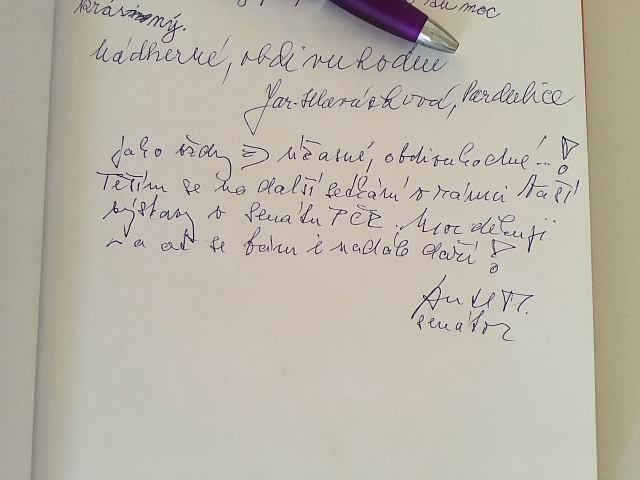 moc
krásný.
Nádherné, obdivuhodné
Jar. Hlaváčková, Pardubice
jako vždy => úžasné, obdivuhodné...!
Těším se na další setkání v rámci Vaší
výstavy v senátu PČR. Moc děkuji
a ať se Vám i nadále daří!
senátor